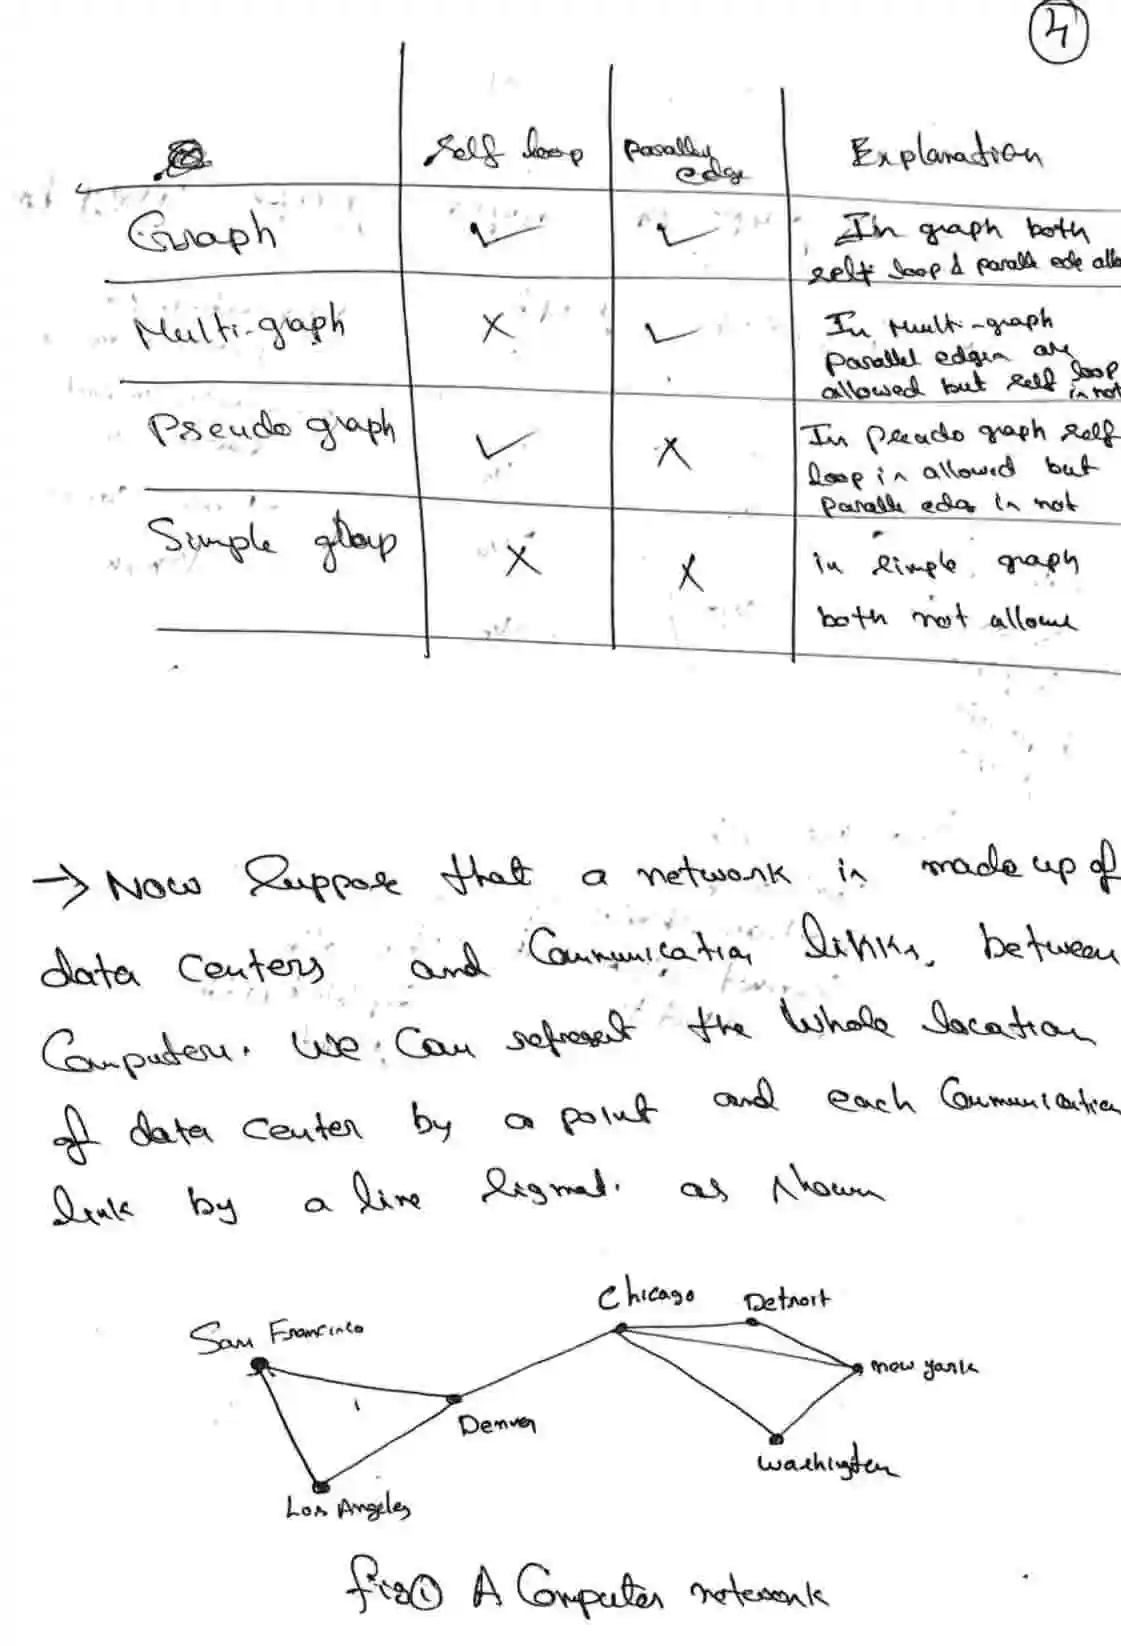 4
Self loop parally edge Explanation
Graph ✓ ✓ In graph both
self loop & paralle ede allo
Multi-graph × ✓ In Multi-graph
Parallel edges are
allowed but self loop is not
Pseudo graph ✓ × In Pseado graph self
loop is allowed but
Paralle edge is not
Simple gloap × × in simple graph
both not allowe
→ Now Suppose that a network is made up of
data centers and Communication links, between
Computers. We Can represent the Whole location
of data center by a point and each Communication
link by a line Sigmat. as shown
Chicago Detroit
San Francisco
new yark
Denver
Washington
Los Angeles
fig ① A Computer network